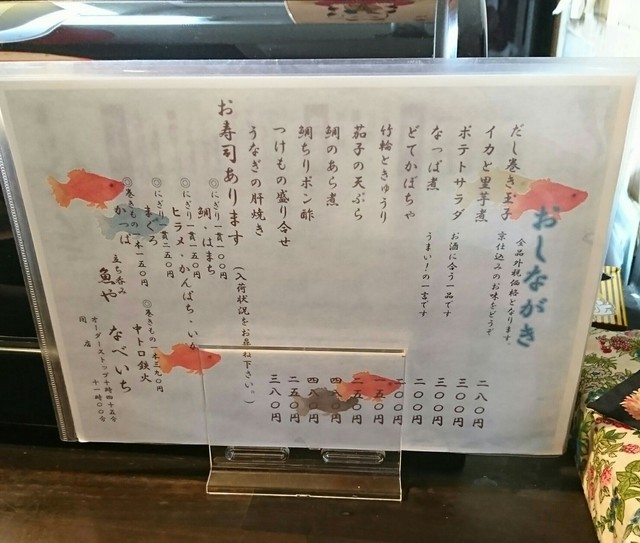 おしながき
全品外税価格となります。
だし巻き玉子 京仕込みのお味をどうぞ 二八〇円
イカと里芋煮 三〇〇円
ポテトサラダ お酒に合う一品です 三〇〇円
なっぱ煮 うまい!の一言です 二〇〇円
どてかぼちゃ 二〇〇円
竹輪ときゅうり 一五〇円
茄子の天ぷら 二五〇円
鯛のあら煮 四八〇円
鯛ちりポン酢 四八〇円
つけもの盛り合せ 二五〇円
うなぎの肝焼き 三八〇円
お寿司あります (入荷状況をお尋ね下さい。)
◎にぎり一貫一〇〇円
鯛・はまち
◎にぎり一貫一五〇円
ヒラメ・かんぱち・いか
◎にぎり一貫二五〇円
まぐろ
◎巻きもの一本三九〇円
中トロ鉄火
◎巻きもの一本一五〇円
かっぱ
立ち呑み
魚や なべいち
オーダーストップ十時四十五分
閉店 十一時〇〇分